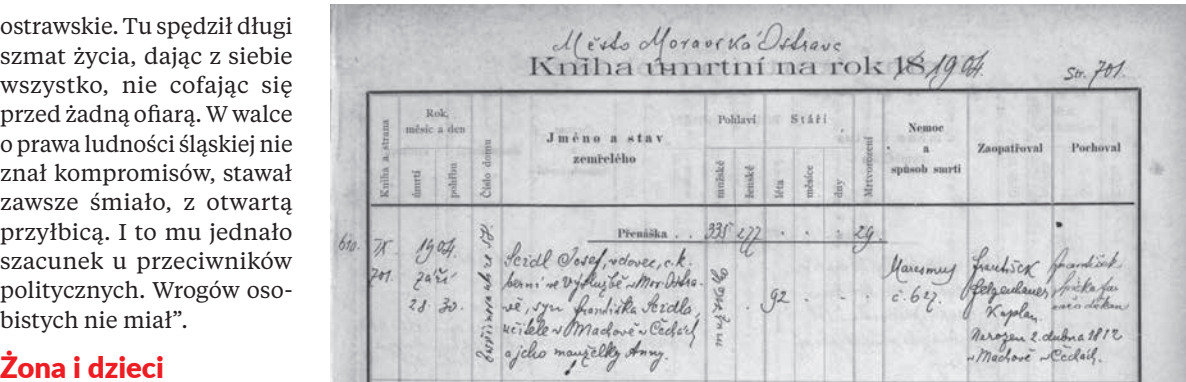 ostrawskie. Tu spędził długi
szmat życia, dając z siebie
wszystko, nie cofając się
przed żadną ofiarą. W walce
o prawa ludności śląskiej nie
znał kompromisów, stawał
zawsze śmiało, z otwartą
przyłbicą. I to mu jednało
szacunek u przeciwników
politycznych. Wrogów oso-
bistych nie miał”.
Żona i dzieci
Město Moravská Ostrava
Kniha úmrtní na rok 18 1904.
Str. 701.
Kniha a strana
Rok,
měsíc a den
úmrtí
pohřbu
Číslo domu
Jméno a stav
zemřelého
Pohlaví
mužské
ženské
Stáří
léta
měsíce
dny
Mrtvorození
Nemoc
a
způsob smrti
Zaopatřoval
Pochoval
Přenáška . . 335 277 . . . 29.
610.
IX.
701.
1904.
září
28. 30.
Seidl Josef, vdovec, c.k.
berní ve výslužbě v Mor. Ostra-
vě, syn Františka Seidla,
učitele v Machově v Čechách
a jeho manželky Anny.
mužské
92 . .
Marasmus
č. 627.
František
Kaplan.
František
farář děkan
Narozen 2. dubna 1812
v Machově v Čechách.